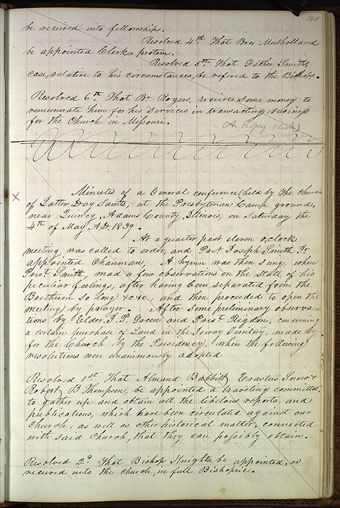 be received into fellowship.
Resolved 4th That Bro Mulholland
be appointed Clerk protem.
Resolved 5th That Father Smiths
case, relative to his circumstances, be refered to the Bishops.
Resolved 6th That Br Rogers, receive some money to
remunerate him for his services in transacting business
for the Church in Missouri.
Minutes of a General conference held by the Church
of Latter Day Saints, at the Presbyterian Camp ground,
near Quincy, Adams County, Illinois, on Saturday the
4th of May, A.D. 1839.
At a quarter past eleven oclock
meeting was called to order, and Prest Joseph Smith Jr
appointed Chairman, A hymn was then sung, when
Prest Smith, made a few observations on the state of his
peculiar feelings, after having been separated from the
Brethren so long &c &c, and then proceeded to open the
meeting by prayer. After some preliminary observa-
tions by Elder J. P. Green and Prest Rigdon, concerning
a certain purchase of Land in the Ioway Teritory, made
for the Church by the Presidency, when the following
resolutions were unanimously adopted
Resolved 1st That Almond Babbitt, Erastus Snow &
Robert B Thompson, be appointed a traveling committee,
to gather up and obtain all the libelous reports, and
publications, which have been circulated against our
Church, as well as other historical matter, connected
with said Church, that they can possibly obtain.
Resolved 2d That Bishop Knight be appointed, or
received into the church, in full Bishopric.